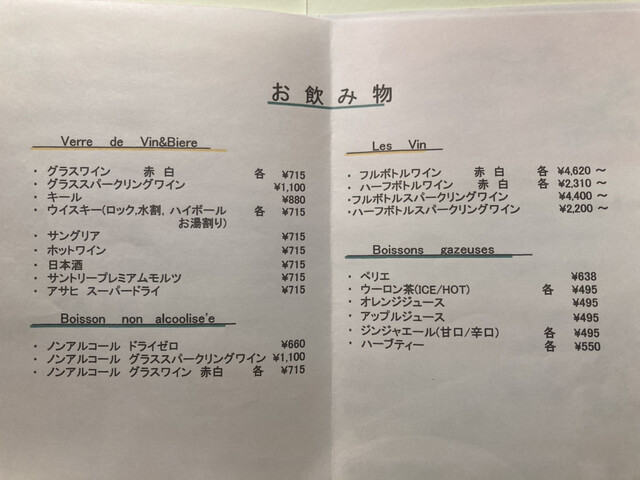 お飲み物
Verre de Vin&Biere
・ グラスワイン 赤 白 各 ¥715
・ グラススパークリングワイン ¥1,100
・ キール ¥880
・ ウイスキー(ロック,水割, ハイボール 各 ¥715
お湯割り)
・ サングリア ¥715
・ ホットワイン ¥715
・ 日本酒 ¥715
・ サントリープレミアムモルツ ¥715
・ アサヒ スーパードライ ¥715
Boisson non alcoolise'e
・ ノンアルコール ドライゼロ ¥660
・ ノンアルコール グラススパークリングワイン ¥1,100
・ ノンアルコール グラスワイン 赤白 各 ¥715
Les Vin
・ フルボトルワイン 赤 白 各 ¥4,620 ～
・ ハーフボトルワイン 赤 白 各 ¥2,310 ～
・フルボトルスパークリングワイン ¥4,400 ～
・ハーフボトルスパークリングワイン ¥2,200 ～
Boissons gazeuses
・ ペリエ ¥638
・ ウーロン茶(ICE/HOT) 各 ¥495
・ オレンジジュース ¥495
・ アップルジュース ¥495
・ ジンジャエール(甘口/辛口) 各 ¥495
・ ハーブティー 各 ¥550